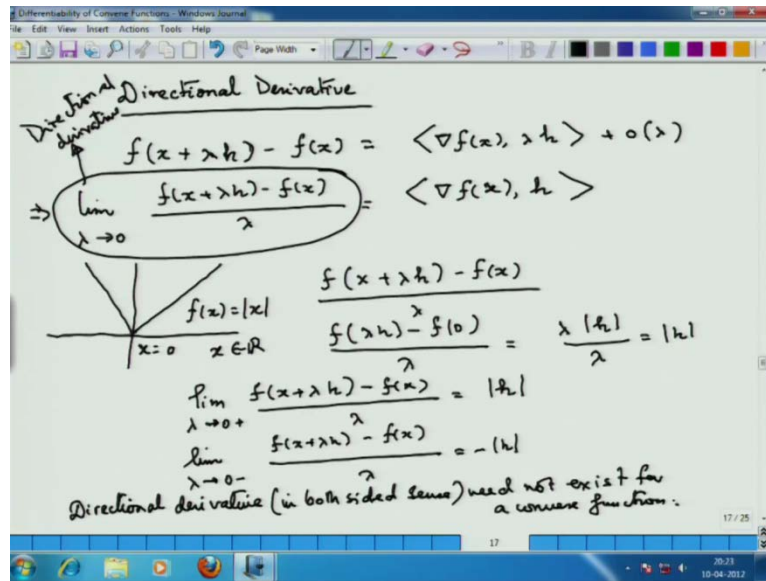 Differentiability of Convex Functions - Windows Journal
File Edit View Insert Actions Tools Help
Page Width
Directional Derivative
Directional derivative
f(x + λh) - f(x) = <∇f(x), λh> + o(λ)
⇒ lim λ→0 f(x+λh) - f(x) / λ = <∇f(x), h>
f(x) = |x|
x=0 x∈ℝ
f(x + λh) - f(x) / λ
f(λh) - f(0) / λ = λ|h| / λ = |h|
lim λ→0+ f(x+λh) - f(x) / λ = |h|
lim λ→0- f(x+λh) - f(x) / λ = -|h|
Directional derivative (in both sided sense) need not exist for
a convex function.
17 / 25
17
20:23
10-04-2012